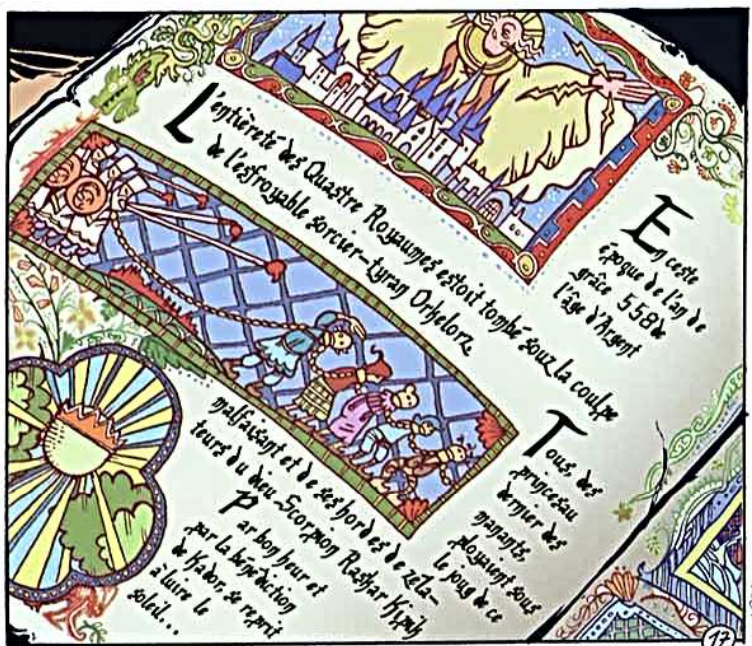 En ceste
époque de l'an de
grâce 558 de
l'âge d'Argent
L'entièreté des Quastre Royaumes estoit tombé souz la coulpe
de l'esfroyable sorcier-tyran Orhelorz
Tous, des
princes au
dernier des
manants,
ployaient sous
le joug de ce
malfaisant et de ses hordes de zéla-
teurs du dieu Scorpion Rashar
Par bon heur et
par la bénédiction
de Kador, se reprit
à luire le
soleil...
17